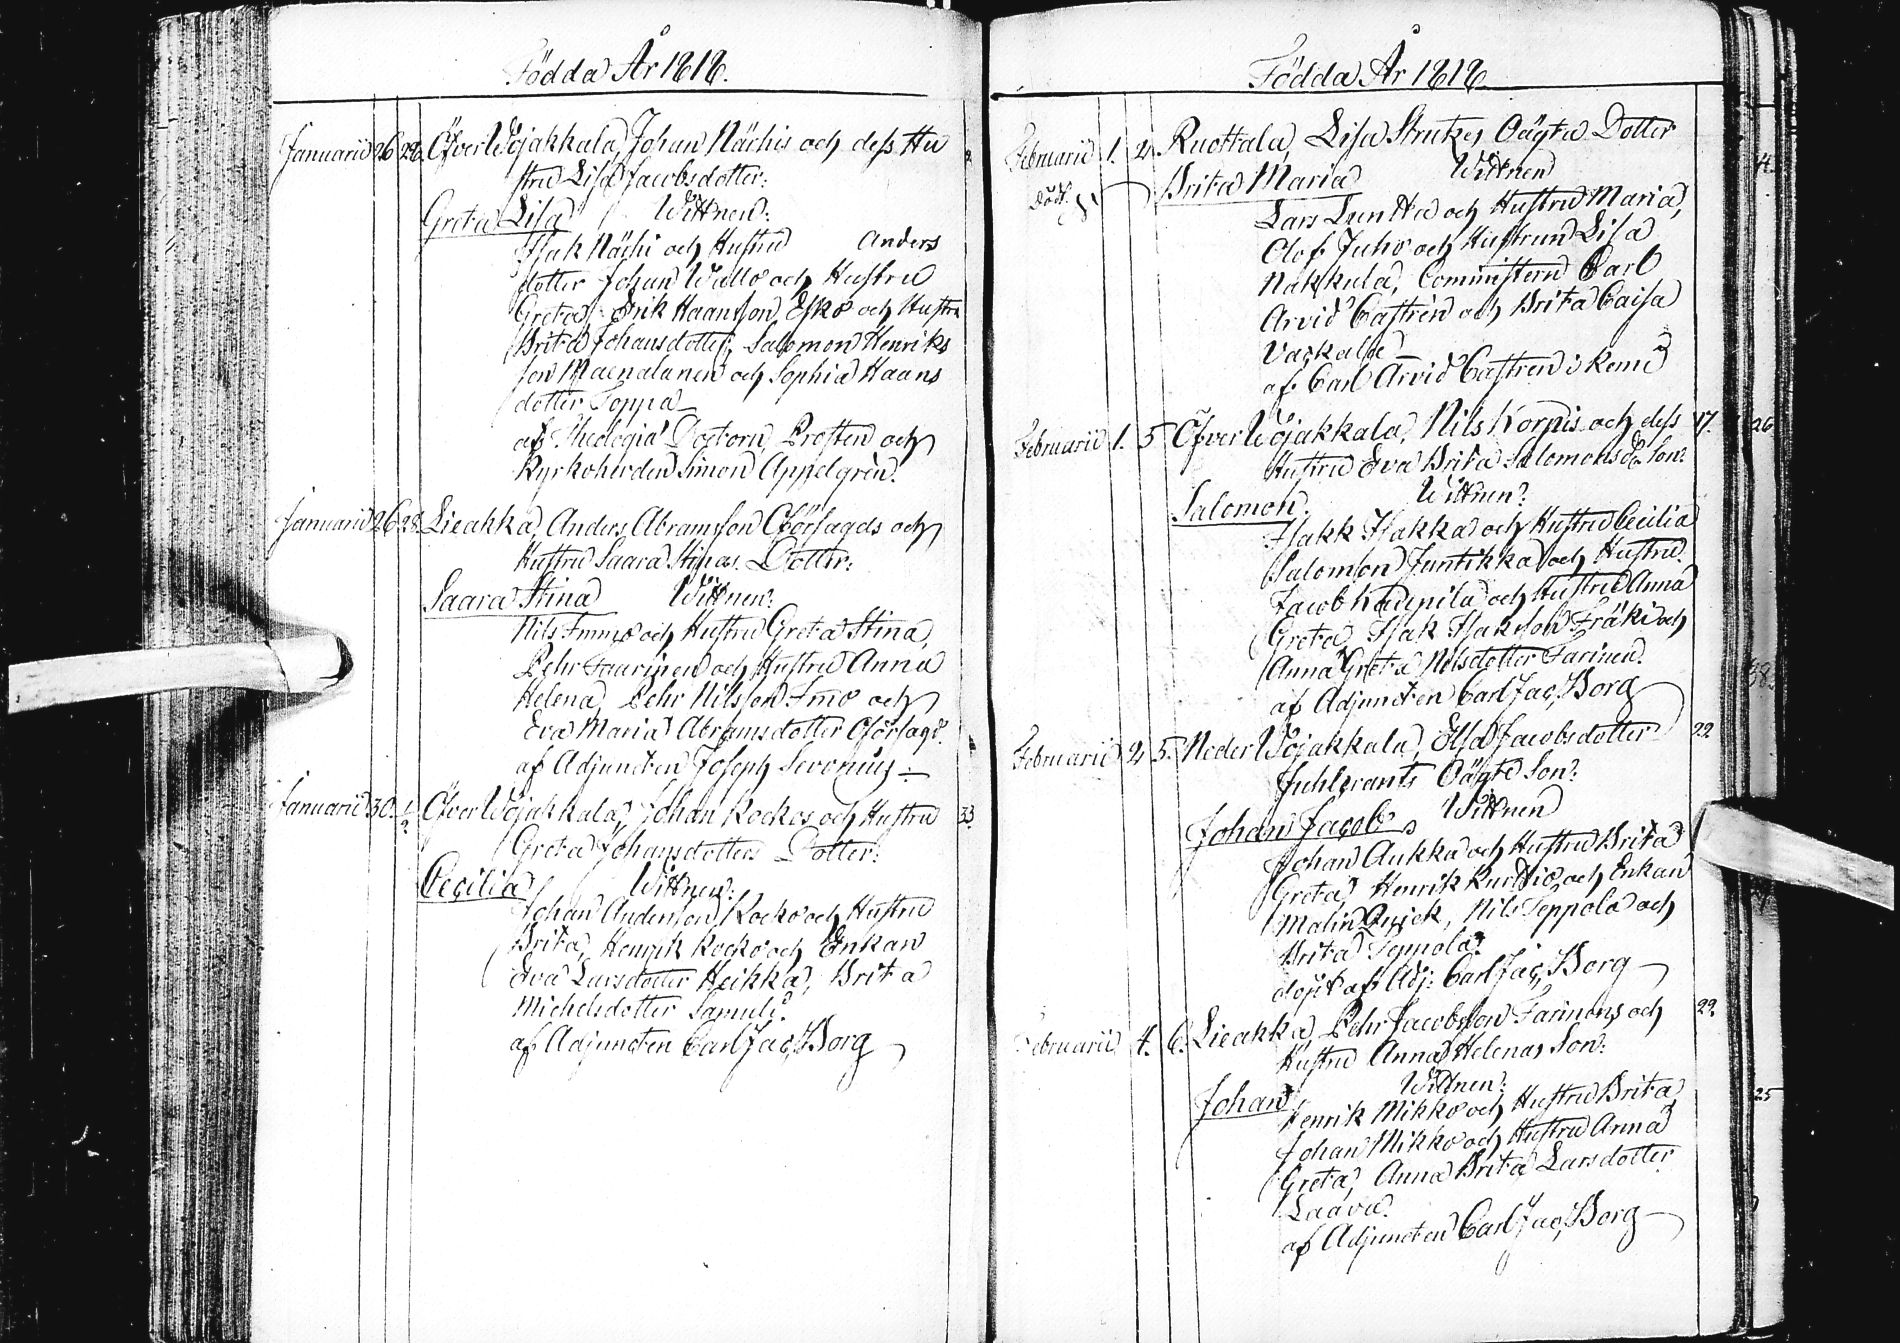 Födda År 1818.
Januarii 26 28. Öfver Wojakkala, Johan Nächis och dess Hu
stru Lisa Jacobsdotter:
Greta Lisa Wittnen:
Isak Nächi och Hustru Anders
dotter Johan Wallo och Hustru
Greta, Erik Haansson Esko och Hustru
Brita Johansdotter, Salomon Henriks
son Maenalanen och Sophia Haans
dotter Toppa
af Theologiæ Doctorn, Prosten och
Kyrkoherden Simon Appelgrén.
Januarii 26 28. Lieakka, Anders Abramsson Oförsagds och
Hustru Saara Stinas Dotter:
Saara Stina Wittnen:
Nils Immo och Hustru Greta Stina,
Pehr Taarinen och Hustru Anna
Helena, Pehr Nilsson Immo och
Eva Maria Abramsdotter Oförsagd.
af Adjuncten Joseph Heronius
Januarii 30. 1/2 Öfver Wojakkala, Johan Kockos och Hustru 33.
Greta Johansdotters Dotter:
Cecilia Wittnen:
Johan Andersson Kocko och Hustru
Brita, Henrik Kocko och Enkan
Eva Larsdotter Heikka, Brita
Michelsdotter Samuli.
af Adjuncten Carl Jac. Borg
Födda År 1818
Februarii 1. 2 Ruottala, Lisa Strukes Oägta Dotter
död. Brita Maria Wittnen
Lars Lunkki och Hustru Maria,
Olof Juho och Hustrun Lisa
Nakkula, Comministern Carl
Arvid Castrén och Brita Caisa
Vackala
af Carl Arvid Castren i Kemi
Februarii 1. 5 Öfver Wojakkala, Nils Korpis och dess 17.
Hustru Eva Brita Salomonsd:rs Son:
Salomon. Wittnen:
Isakk Isakka och Hustru Cecilia
Salomon Juntikka och Hustru
Jacob Kaupila och Hustru Anna
Greta, Isak Isaksson Fräki och
Anna Greta Nilsdotter Farinen.
af Adjuncten Carl Jac. Borg
Februarii 2 5. Neder Wojakkala, Elsa Jacobsdotter 22.
Juhlerants Oägta Son:
Johan Jacob Wittnen
Johan Aukka och Hustru Brita
Greta, Henrik Kurttio, och Enkan
Malin Quick, Nils Teppola och
Brita Teppola.
döpt af Adj: Carl Jac. Borg
Februarii 4. 6. Lieakka, Pehr Jacobsson Farinens och 22.
Hustru Anna Helenas Son:
Wittnen:
Johan Henrik Mikko och Hustru Brita
Johan Mikko och Hustru Anna
Greta, Anna Brita Larsdotter
Laava.
af Adjuncten Carl Jac. Borg
26
38.
25